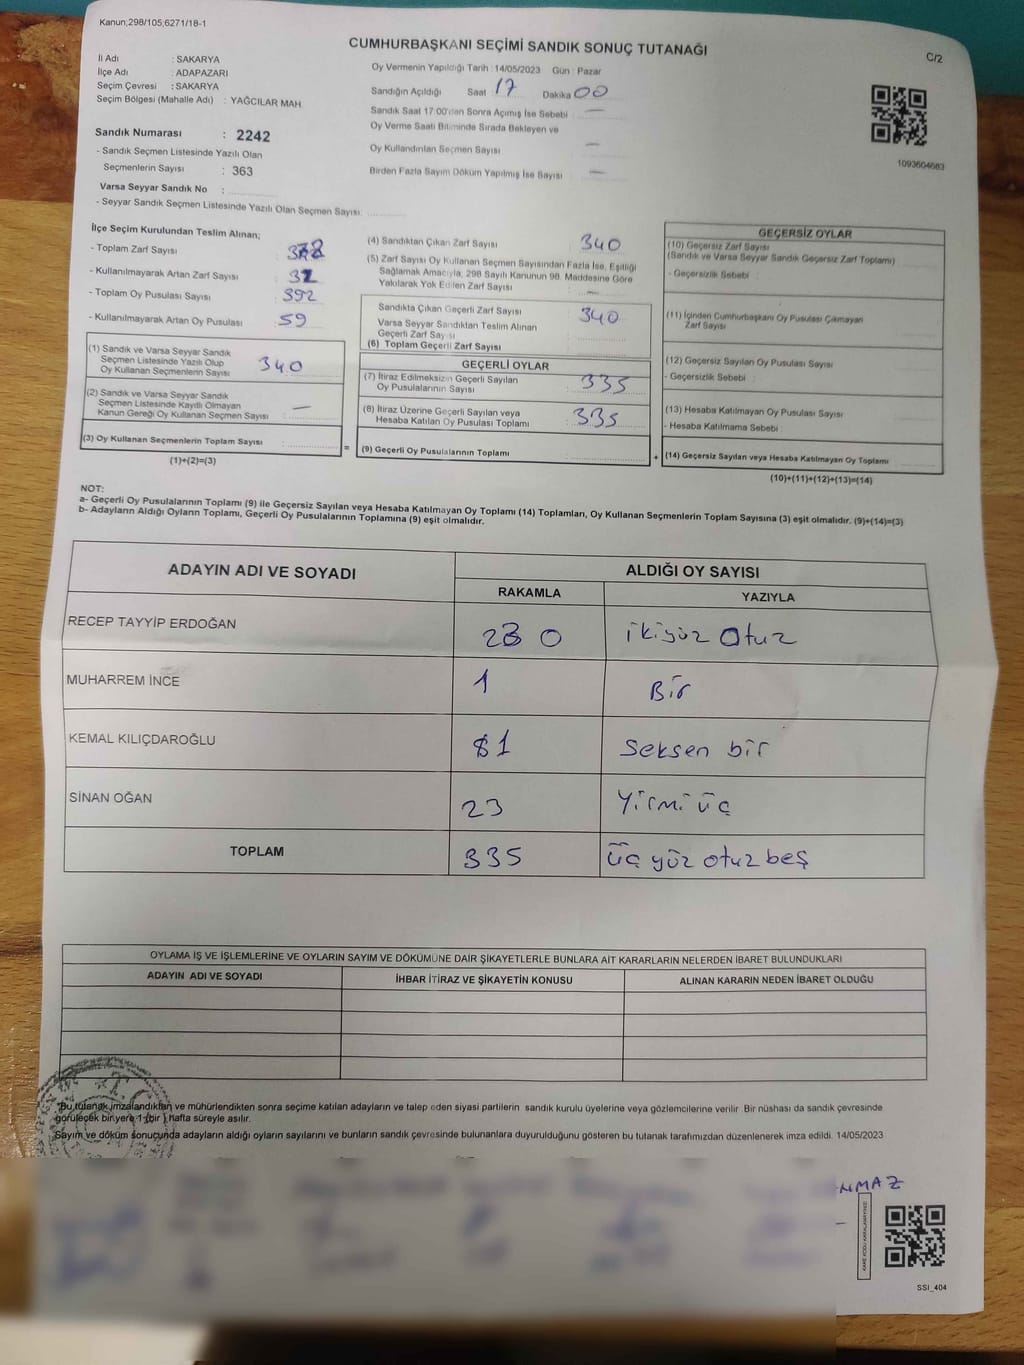 Kanun;298/105;6271/18-1
CUMHURBAŞKANI SEÇİMİ SANDIK SONUÇ TUTANAĞI
C/2
İl Adı : SAKARYA
İlçe Adı : ADAPAZARI
Seçim Çevresi : SAKARYA
Seçim Bölgesi (Mahalle Adı) : YAĞCILAR MAH.
Sandık Numarası : 2242
- Sandık Seçmen Listesinde Yazılı Olan
Seçmenlerin Sayısı : 363
Varsa Seyyar Sandık No :
- Seyyar Sandık Seçmen Listesinde Yazılı Olan Seçmen Sayısı:
Oy Vermenin Yapıldığı Tarih : 14/05/2023 Gün : Pazar
Sandığın Açıldığı Saat 17 Dakika 00
Sandık Saat 17:00'den Sonra Açımış İse Sebebi : —
Oy Verme Saati Bitiminde Sırada Bekleyen ve
Oy Kullandırılan Seçmen Sayısı —
Birden Fazla Sayım Döküm Yapılmış İse Sayısı : —
1093604683
İlçe Seçim Kurulundan Teslim Alınan;
- Toplam Zarf Sayısı :
- Kullanılmayarak Artan Zarf Sayısı :
- Toplam Oy Pusulası Sayısı : 392
- Kullanılmayarak Artan Oy Pusulası : 59
(1) Sandık ve Varsa Seyyar Sandık
Seçmen Listesinde Yazılı Olup
Oy Kullanan Seçmenlerin Sayısı : 340
(2) Sandık ve Varsa Seyyar Sandık
Seçmen Listesinde Kayıtlı Olmayan
Kanun Gereği Oy Kullanan Seçmen Sayısı : —
(3) Oy Kullanan Seçmenlerin Toplam Sayısı :
(1)+(2)=(3)
(4) Sandıktan Çıkan Zarf Sayısı : 340
(5) Zarf Sayısı Oy Kullanan Seçmen Sayısından Fazla İse, Eşitliği
Sağlamak Amacıyla, 298 Sayılı Kanunun 98. Maddesine Göre
Yakılarak Yok Edilen Zarf Sayısı : —
Sandıkta Çıkan Geçerli Zarf Sayısı : 340
Varsa Seyyar Sandıktan Teslim Alınan
Geçerli Zarf Sayısı
(6) Toplam Geçerli Zarf Sayısı
GEÇERLİ OYLAR
(7) İtiraz Edilmeksizin Geçerli Sayılan
Oy Pusulalarının Sayısı : 335
(8) İtiraz Üzerine Geçerli Sayılan veya
Hesaba Katılan Oy Pusulası Toplamı : 335
= (9) Geçerli Oy Pusulalarının Toplamı :
GEÇERSİZ OYLAR
(10) Geçersiz Zarf Sayısı
(Sandık ve Varsa Seyyar Sandık Geçersiz Zarf Toplamı) :
- Geçersizlik Sebebi :
(11) İçinden Cumhurbaşkanı Oy Pusulası Çıkmayan
Zarf Sayısı
(12) Geçersiz Sayılan Oy Pusulası Sayısı :
- Geçersizlik Sebebi :
(13) Hesaba Katılmayan Oy Pusulası Sayısı :
- Hesaba Katılmama Sebebi :
+ (14) Geçersiz Sayılan veya Hesaba Katılmayan Oy Toplamı :
(10)+(11)+(12)+(13)=(14)
NOT:
a- Geçerli Oy Pusulalarının Toplamı (9) ile Geçersiz Sayılan veya Hesaba Katılmayan Oy Toplamı (14) Toplamları, Oy Kullanan Seçmenlerin Toplam Sayısına (3) eşit olmalıdır. (9)+(14)=(3)
b- Adayların Aldığı Oyların Toplamı, Geçerli Oy Pusulalarının Toplamına (9) eşit olmalıdır.
ADAYIN ADI VE SOYADI ALDIĞI OY SAYISI
RAKAMLA YAZIYLA
RECEP TAYYİP ERDOĞAN 230 ikiyüz otuz
MUHARREM İNCE 1 Bir
KEMAL KILIÇDAROĞLU 81 Seksen bir
SİNAN OĞAN 23 Yirmi üç
TOPLAM 335 üç yüz otuz beş
OYLAMA İŞ VE İŞLEMLERİNE VE OYLARIN SAYIM VE DÖKÜMÜNE DAİR ŞİKAYETLERLE BUNLARA AİT KARARLARIN NELERDEN İBARET BULUNDUKLARI
ADAYIN ADI VE SOYADI İHBAR İTİRAZ VE ŞİKAYETİN KONUSU ALINAN KARARIN NEDEN İBARET OLDUĞU
Bu tutanak imzalandıktan ve mühürlendikten sonra seçime katılan adayların ve talep eden siyasi partilerin sandık kurulu üyelerine veya gözlemcilerine verilir. Bir nüshası da sandık çevresinde
görülecek bir yere 1 (bir) hafta süreyle asılır.
Sayım ve döküm sonucunda adayların aldığı oyların sayılarını ve bunların sandık çevresinde bulunanlara duyurulduğunu gösteren bu tutanak tarafımızdan düzenlenerek imza edildi. 14/05/2023
NMAZ
KARE KODU KARALAMAYINIZ!
SSI_404